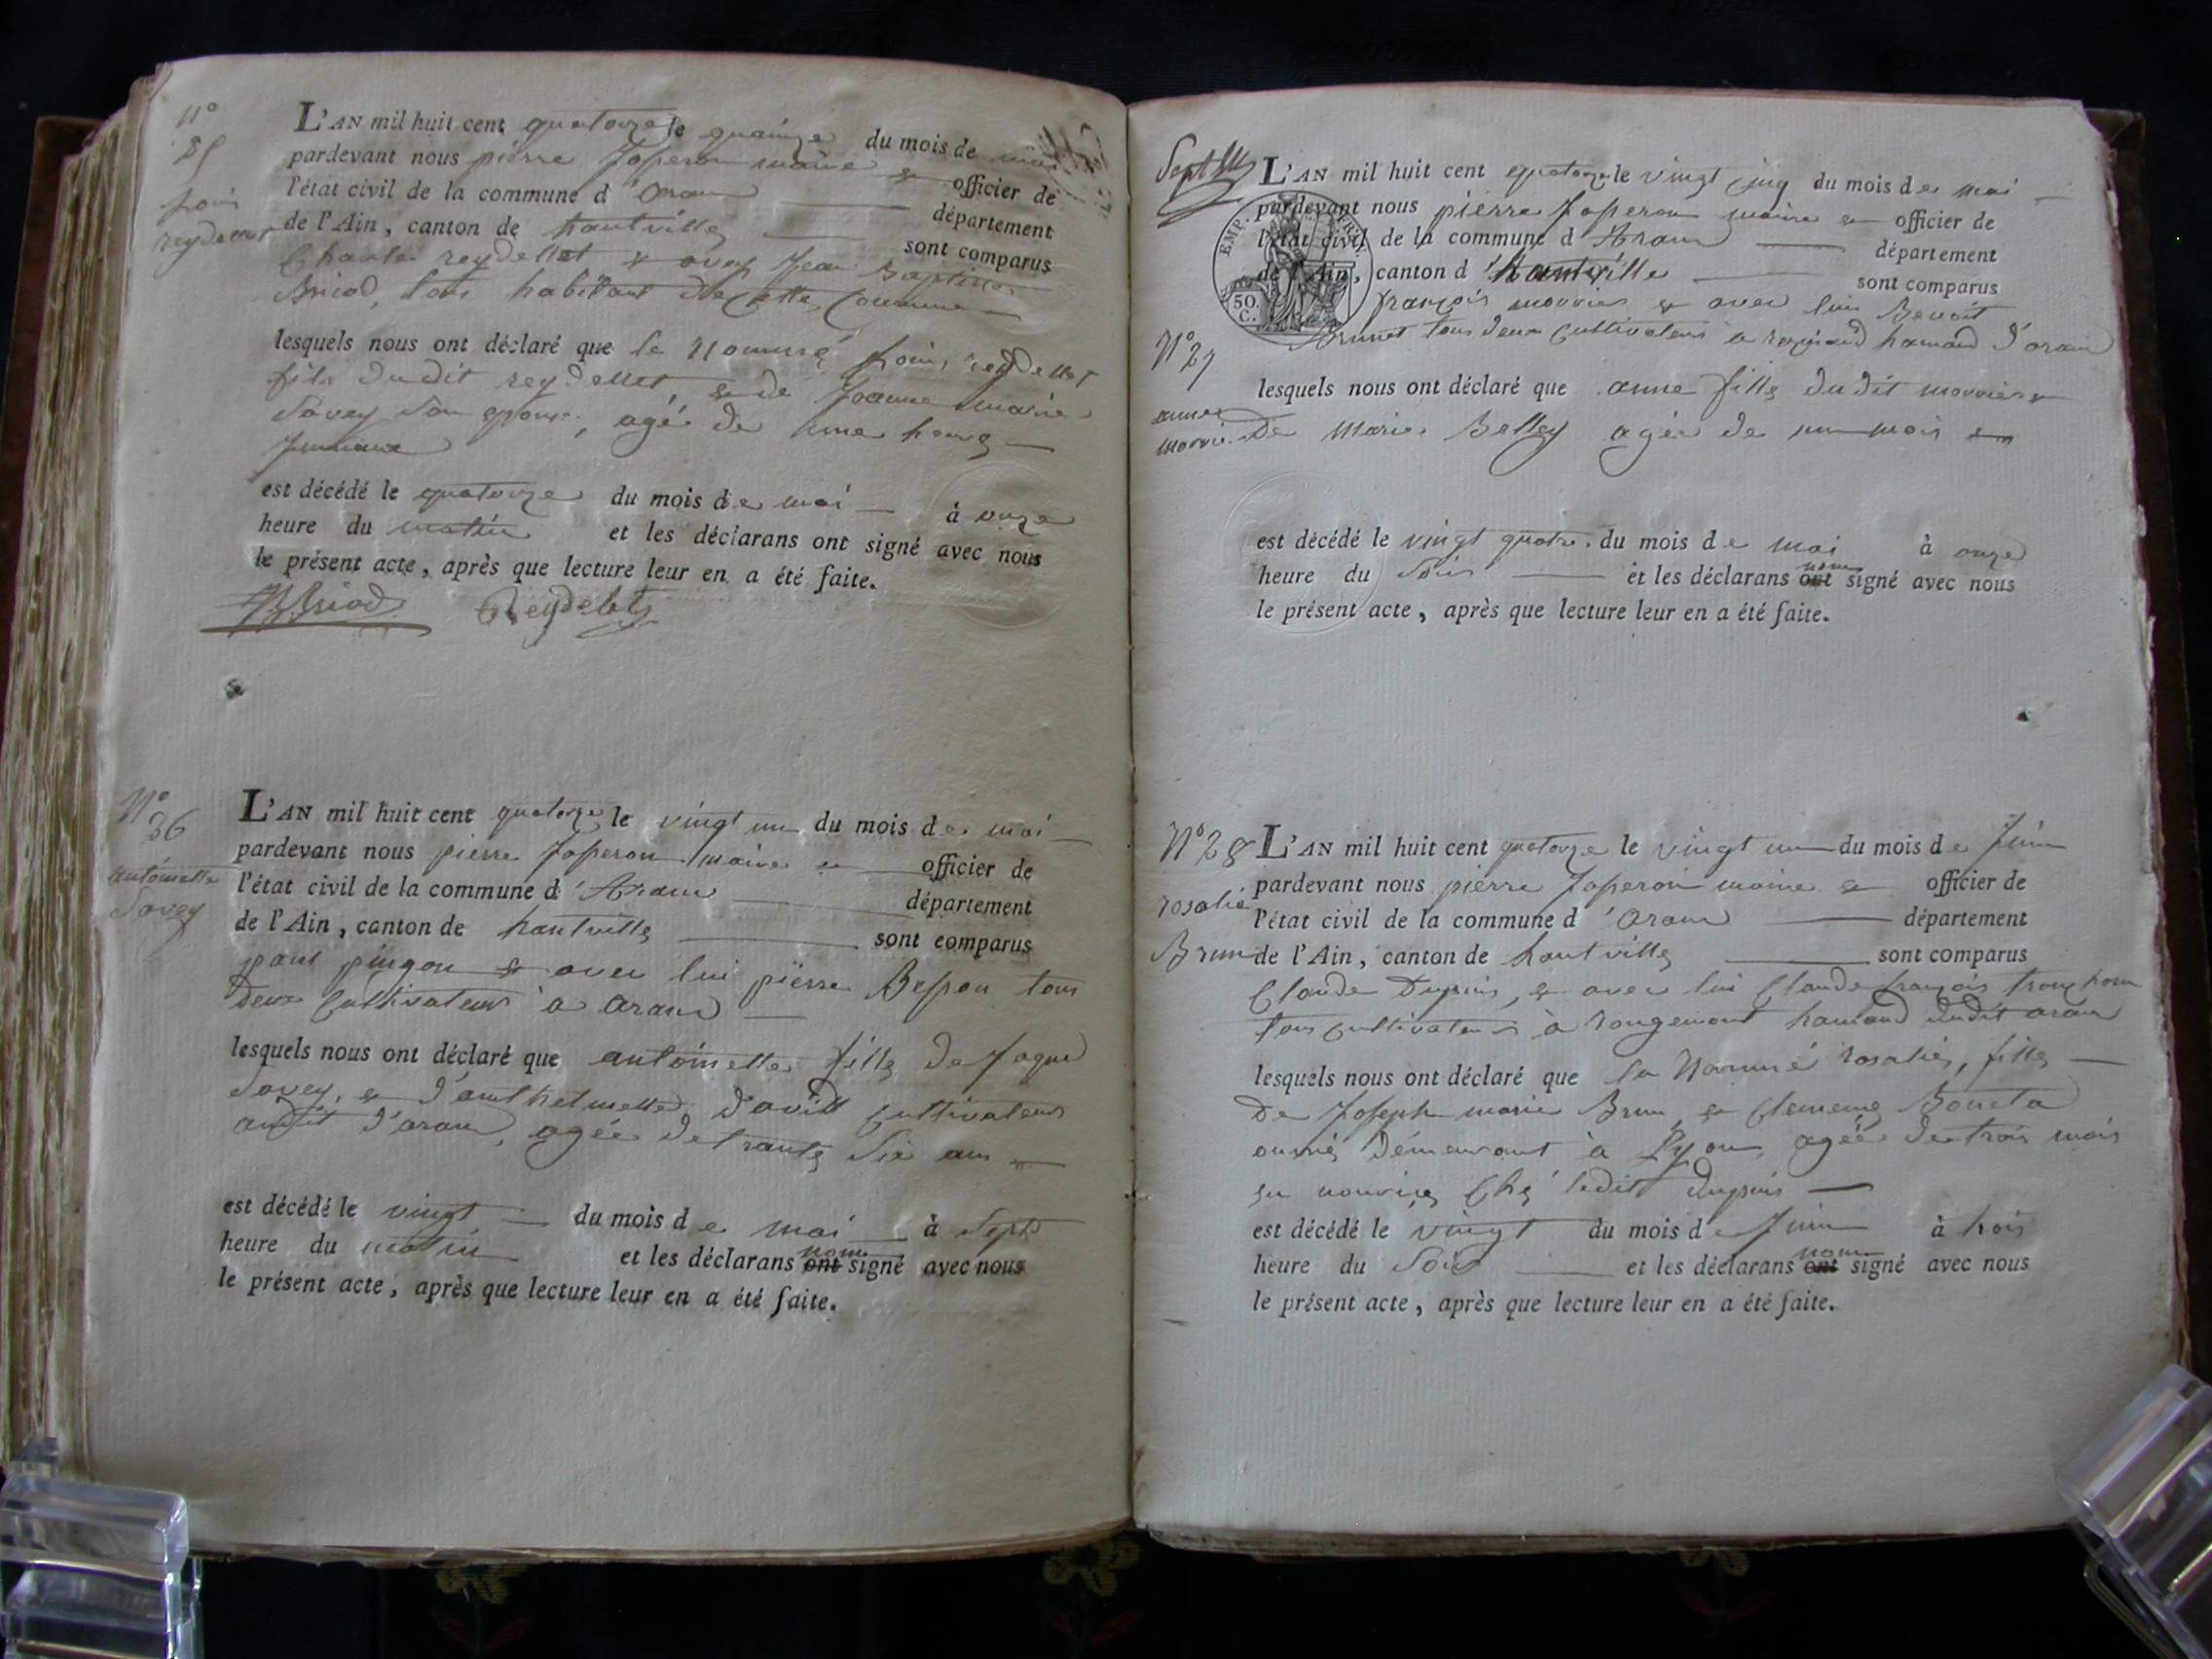 N°
25
reydellet
L'AN mil huit cent quatorze le quainze du mois de mai
pardevant nous pierre Joperon maire & officier de
l'état civil de la commune d'Aran département
de l'Ain, canton de hautville sont comparus
Charle reydellet & avec Jean Baptiste
Briod, tous habitant de cette Commune
lesquels nous ont déclaré que le Nommé reydellet
fils dudit reydellet & de Joanne marie
Savey Son epouse, agé de une heure
est décédé le quatorze du mois de mai à onze
heure du matin et les déclarans ont signé avec nous
le présent acte, après que lecture leur en a été faite.
Briod Reydelet
N°
26
antoinette
Savey
L'AN mil huit cent quatorze le vingt un du mois de mai
pardevant nous pierre Joperon maire & officier de
l'état civil de la commune d'Aran département
de l'Ain, canton de hautville sont comparus
paul pingon & avec lui pierre Besson tous
deux Cultivateurs à aran
lesquels nous ont déclaré que antoinette fille de Jaque
Savey, & d'anthelmette d'avill cultivateurs
audit d'aran, agée de trante Six ans
est décédé le vingt du mois de mai à Sept
heure du matin et les déclarans ont non signé avec nous
le présent acte, après que lecture leur en a été faite.
Sept
L'AN mil huit cent quatorze le vingt cinq du mois de mai
pardevant nous pierre Joperon maire & officier de
l'état civil de la commune d'Aran département
de l'Ain, canton d'hautville sont comparus
EMP.
50.
C.
françois mouvier & avec lui Benoit
Brunet tous deux Cultivateurs a hamaud d'aran
N°
27
anne
lesquels nous ont déclaré que anne fille dudit mouvier &
De Marie Belley agée de un mois
est décédé le vingt quatre du mois de mai à onze
heure du Soir et les déclarans ont non signé avec nous
le présent acte, après que lecture leur en a été faite.
N° 28
rosalie
Brun
L'AN mil huit cent quatorze le vingt un du mois de Juin
pardevant nous pierre Joperon maire & officier de
l'état civil de la commune d'Aran département
de l'Ain, canton de hautville sont comparus
Claude Dupuis, & avec lui Claude françois
tous cultivateurs à rougemont hamaud dudit aran
lesquels nous ont déclaré que la Nommé rosalie, fille
De Joseph marie Brun, & Clemence
ouvrié Demeurant à Lyon, agée de trois mois
en nourice Ché ledit dupuis
est décédé le vingt du mois de Juin à trois
heure du Soir et les déclarans ont non signé avec nous
le présent acte, après que lecture leur en a été faite.